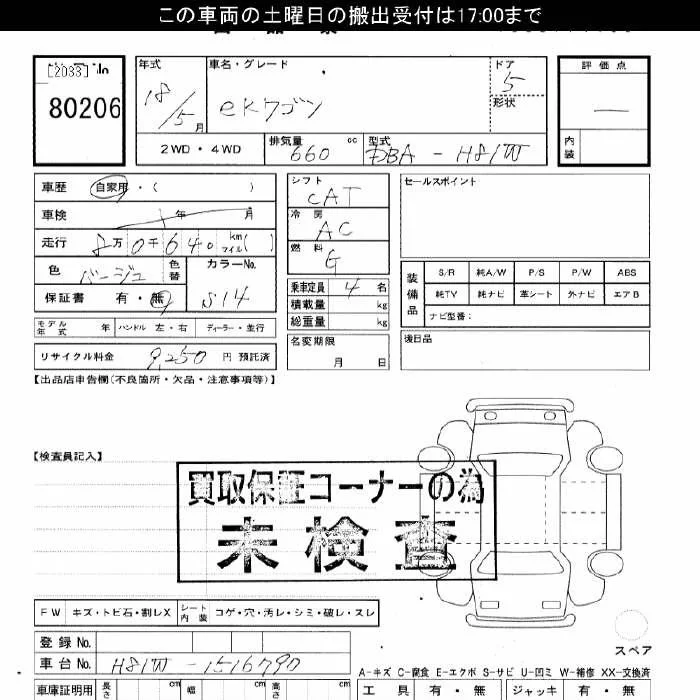 この車両の土曜日の搬出受付は17:00まで
[2033] No
80206
年式
18/5月
車名・グレード
eKワゴン
ドア
5
形状
評価点
―
内装
2WD・4WD
排気量
660 cc
型式
DBA - H81W
車歴 自家用・( )
車検 年 月
走行 8万0千640 km マイル( )
色 ベージュ 色替
カラーNo.
S14
保証書 有・無
モデル年式 年 ハンドル 左・右 ディーラー・並行
リサイクル料金 9,250 円 預託済
シフト
CAT
冷房
AC
燃料
G
乗車定員 4 名
積載量 kg
総重量 kg
名変期限
月 日
セールスポイント
装備品
S/R 純A/W P/S P/W ABS
純TV 純ナビ 革シート 外ナビ エアB
ナビ型番:
後日品
【出品店申告欄(不良箇所・欠品・注意事項等)】
【検査員記入】
買取保証コーナーの為
未検査
FW キズ・トビ石・割レX シート内装 コゲ・穴・汚レ・シミ・破レ・スレ
登録No.
車台No. H81W-1516790
スペア
A-キズ C-腐食 E-エクボ S-サビ U-凹ミ W-補修 XX-交換済
車庫証明用 長さ cm 幅 cm 高さ cm
工具 有・無 ジャッキ 有・無